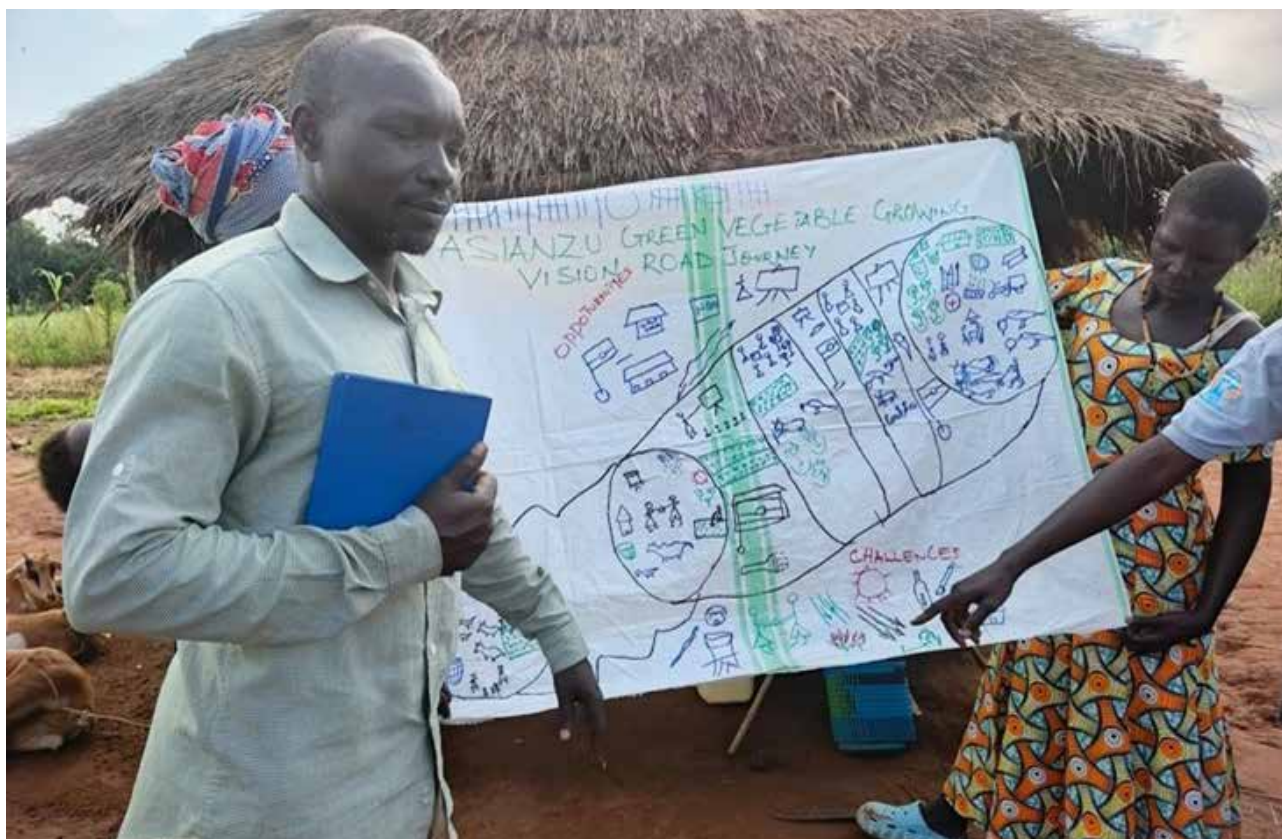 ASIANZU GREEN VEGETABLE GROWING
VISION ROAD JOURNEY
OPPORTUNITIES
CHALLENGES